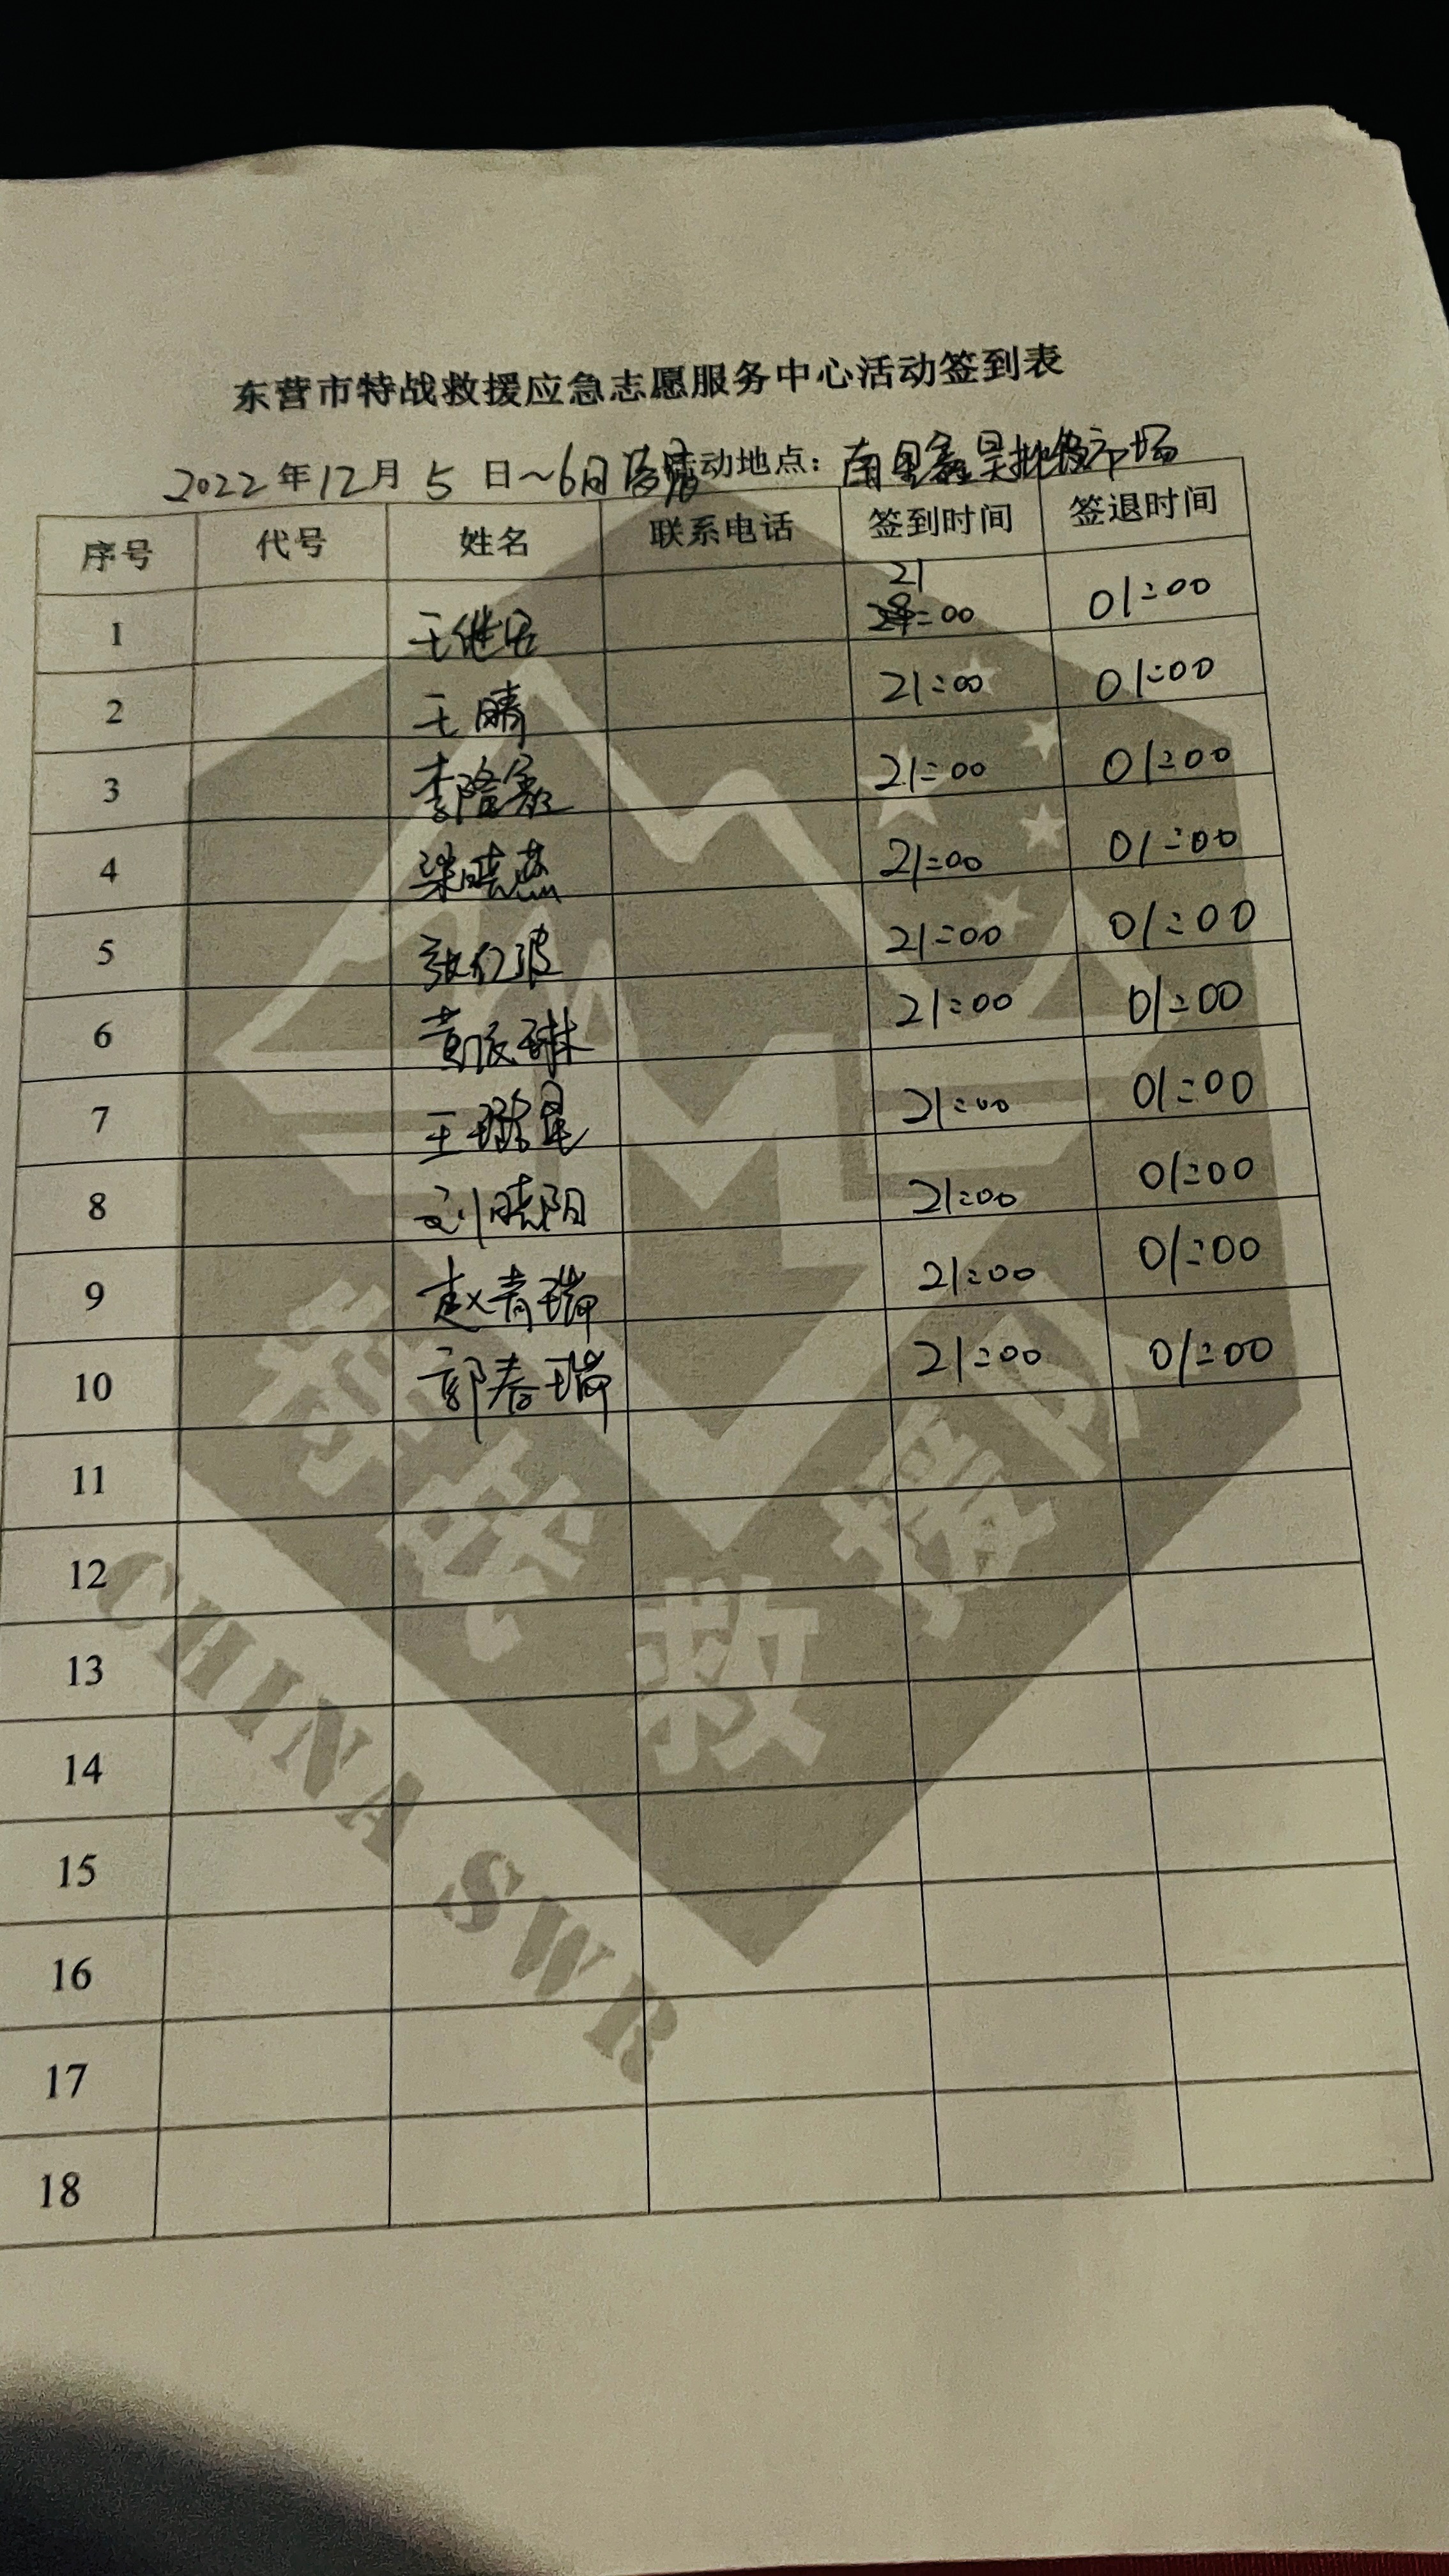 东营市特战救援应急志愿服务中心活动签到表
2022年12月5日~6日凌晨 活动地点：南里鑫昊批发市场
序号 代号 姓名 联系电话 签到时间 签退时间
1 王继 21:00 01:00
2 王晴 21:00 01:00
3 李 21:00 01:00
4 梁晓燕 21:00 01:00
5 张仁波 21:00 01:00
6 黄 琳 21:00 01:00
7 王 21:00 01:00
8 刘晓阳 21:00 01:00
9 赵青瑞 21:00 01:00
10 郭春瑞 21:00 01:00
11
12
13
14
15
16
17
18
特战救援队
CHINA SWR